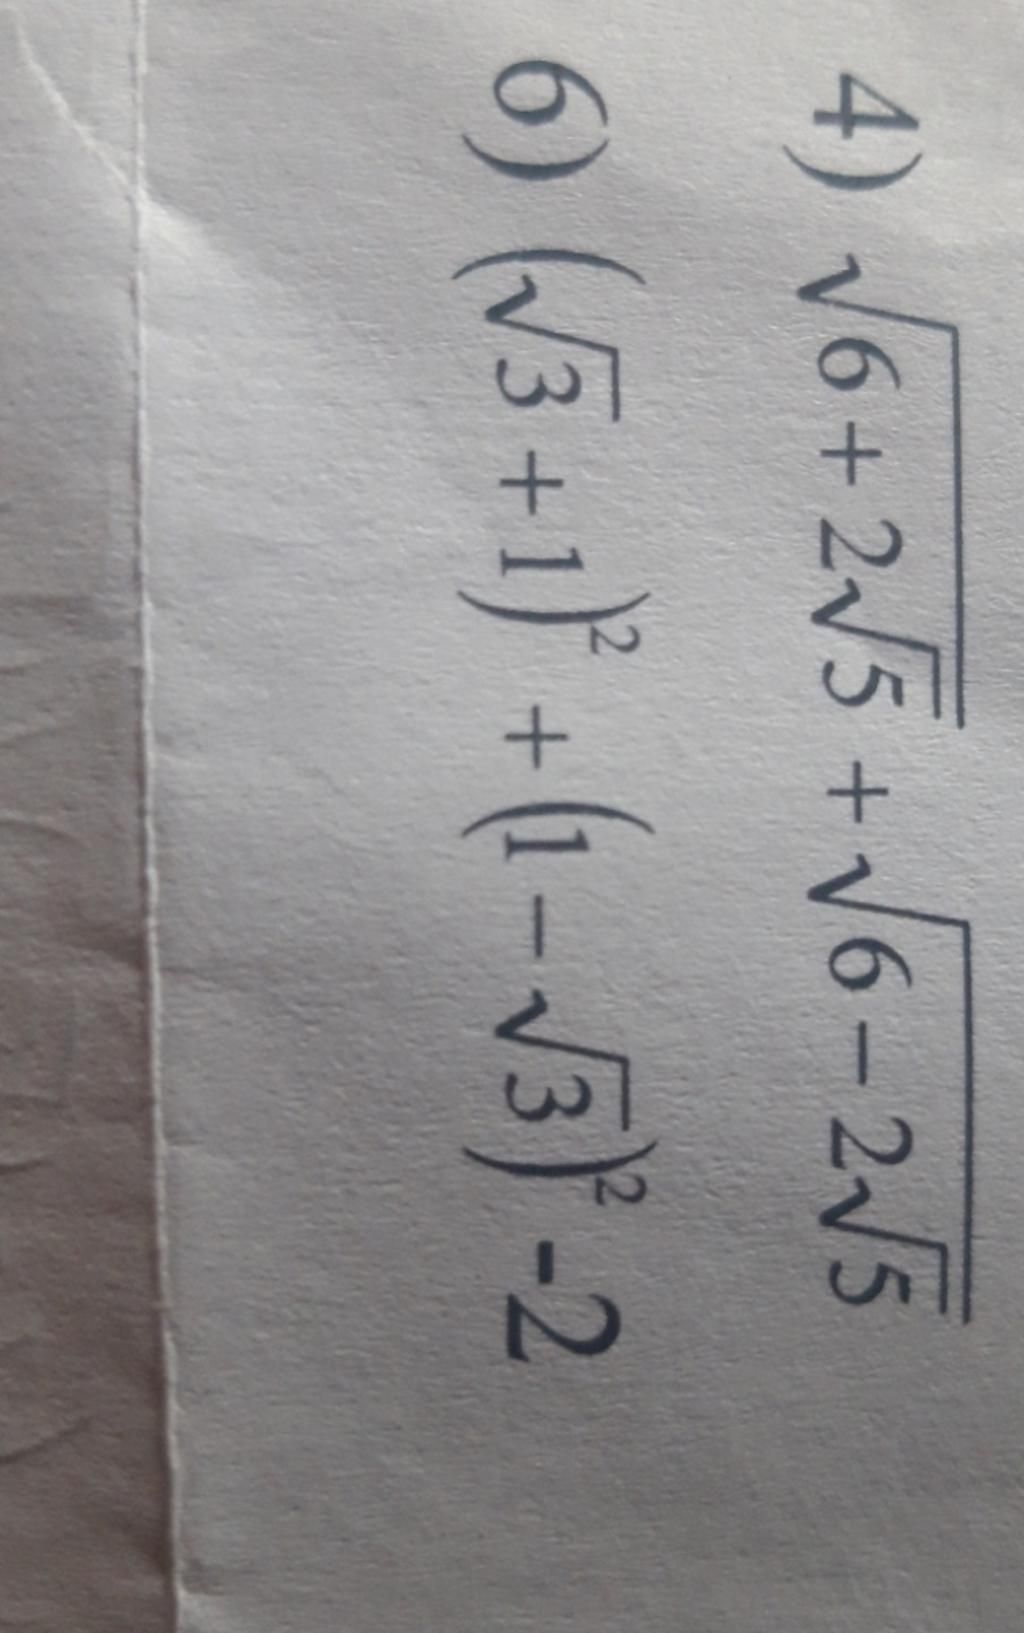 4) √(6 + 2√5) + √(6 − 2√5)
6) (√3 + 1)² + (1 − √3)² -2